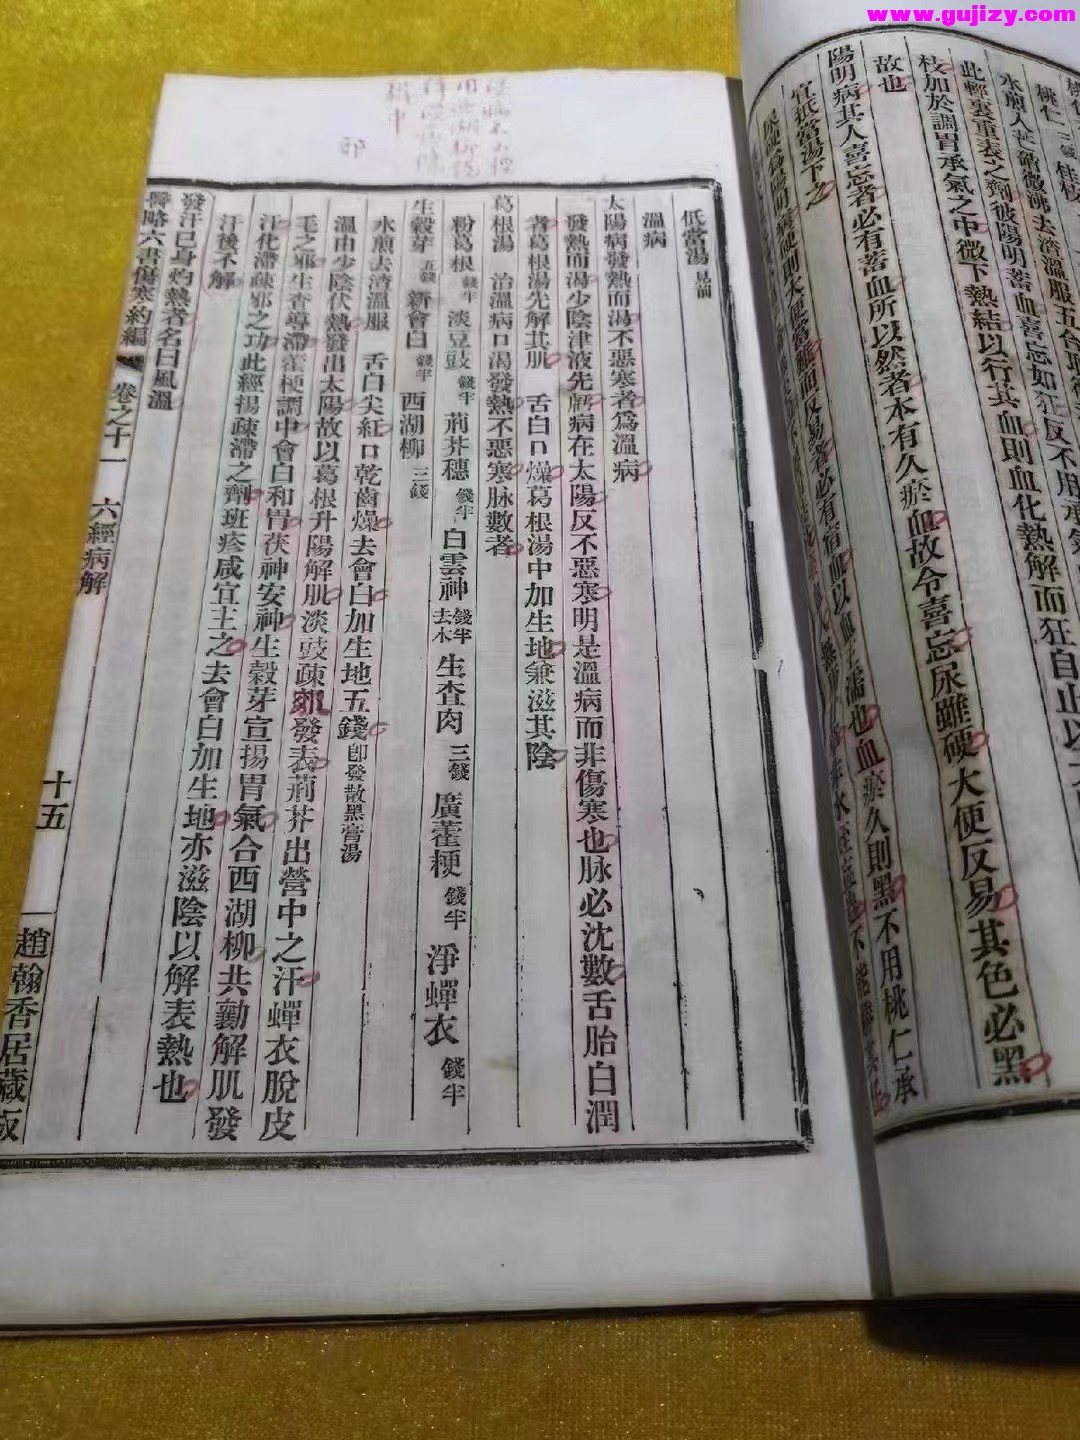 www.gujizy.com
水煎入芒硝微沸去渣溫服五合
此輕裏重表之劑彼陽明蓄血喜忘如狂反不用承氣
枝加於調胃承氣之中微下熱結以行其血則血化熱解而狂自止以
故也
陽明病其人喜忘者必有蓄血所以然者本有久瘀血故令喜忘尿雖硬大便反易其色必黑
宜抵當湯下之
低當湯 見前
溫病
太陽病發熱而渴不惡寒者爲溫病
發熱而渴少陰津液先虧病在太陽反不惡寒明是溫病而非傷寒也脉必沈數舌胎白潤
者葛根湯先解其肌 舌白口燥葛根湯中加生地兼滋其陰
葛根湯 治溫病口渴發熱不惡寒脉數者
粉葛根 錢半 淡豆豉 錢半 荊芥穗 錢半 白雲神 錢半去木 生查肉 三錢 廣藿梗 錢半 淨蟬衣 錢半
生穀芽 五錢 新會白 錢半 西湖柳 三錢
水煎去渣溫服 舌白尖紅口乾齒燥去會白加生地五錢 卽發散黑膏湯
溫由少陰伏熱發出太陽故以葛根升陽解肌淡豉疎邪發表荊芥出營中之汗蟬衣脫皮
毛之邪生查導滯藿梗調中會白和胃茯神安神生穀芽宣揚胃氣合西湖柳共勷解肌發
汗化滯疎邪之功此經揚疎滯之劑班疹咸宜主之去會白加生地亦滋陰以解表熱也
汗後不解
發汗已身灼熱者名曰風溫
醫略六書傷寒約編 卷之十一 六經病解 十五 趙翰香居藏版